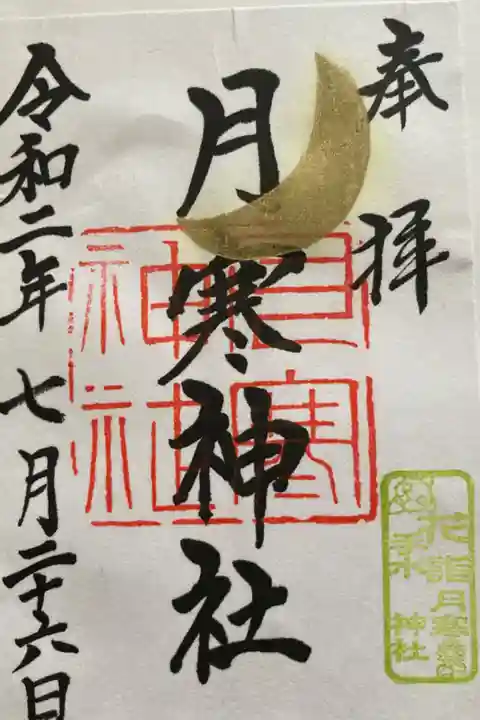 奉拝
月寒神社
令和二年七月二十六日
月寒神社